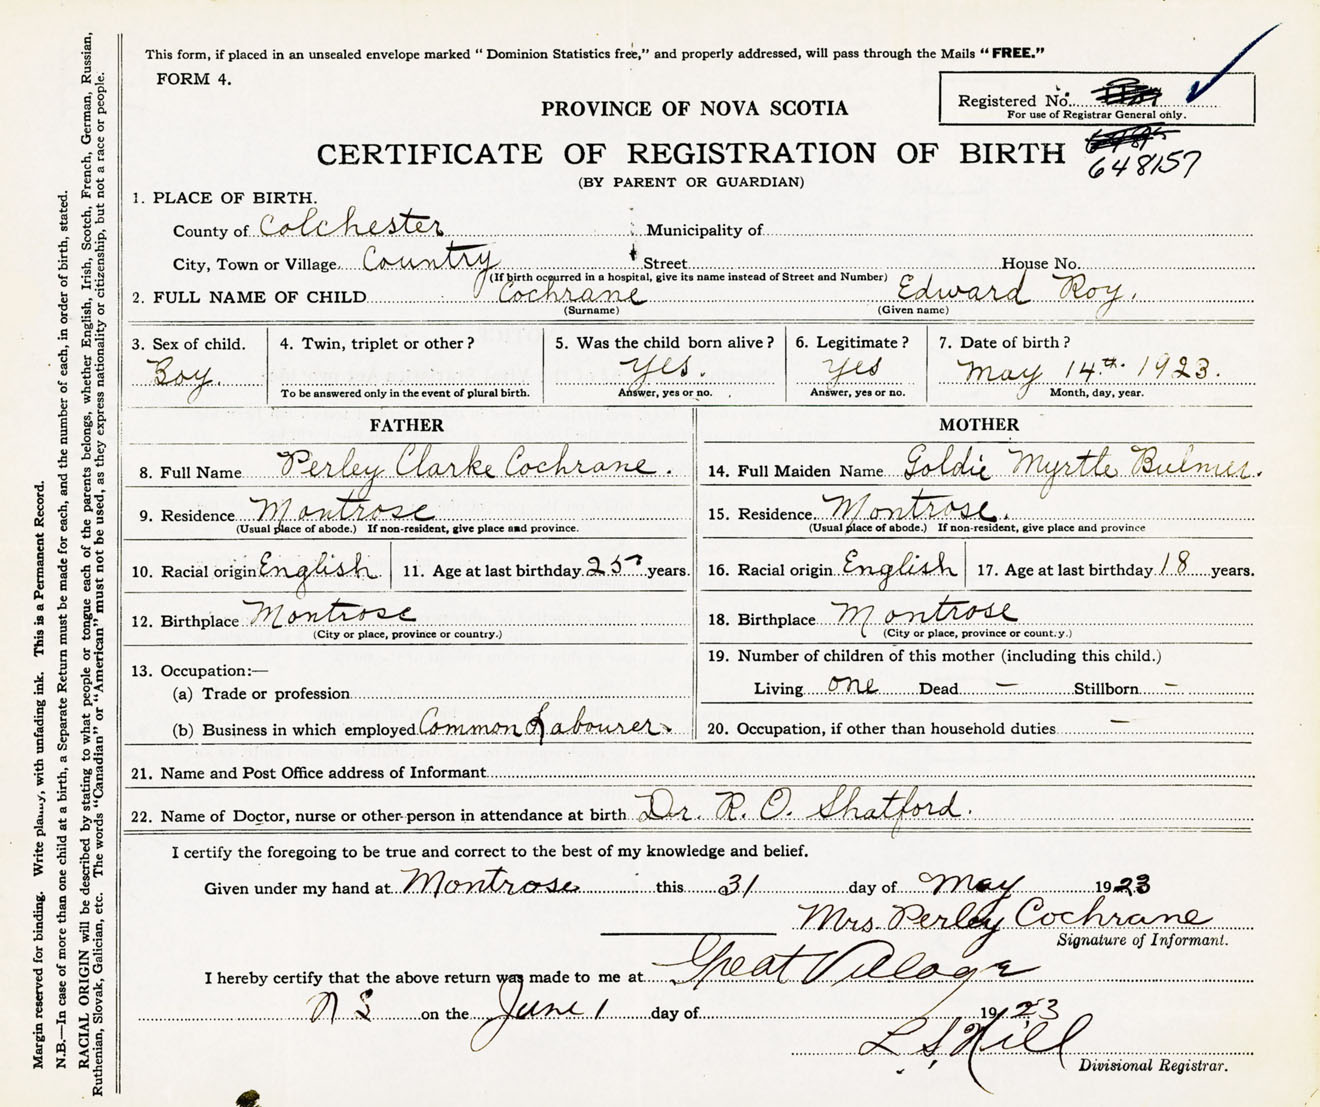 This form, if placed in an unsealed envelope marked "Dominion Statistics free," and properly addressed, will pass through the Mails "FREE."
FORM 4.
Registered No.
For use of Registrar General only.
PROVINCE OF NOVA SCOTIA
CERTIFICATE OF REGISTRATION OF BIRTH
648157
(BY PARENT OR GUARDIAN)
1. PLACE OF BIRTH.
County of Colchester Municipality of
City, Town or Village Country Street House No.
(If birth occurred in a hospital, give its name instead of Street and Number)
2. FULL NAME OF CHILD Cochrane Edward Roy.
(Surname) (Given name)
3. Sex of child. 4. Twin, triplet or other? 5. Was the child born alive? 6. Legitimate? 7. Date of birth?
Boy. Yes. Yes May 14th. 1923.
To be answered only in the event of plural birth. Answer, yes or no. Answer, yes or no. Month, day, year.
FATHER MOTHER
8. Full Name Perley Clarke Cochrane. 14. Full Maiden Name Goldie Myrtle Bulmer.
9. Residence Montrose 15. Residence Montrose.
(Usual place of abode.) If non-resident, give place and province. (Usual place of abode.) If non-resident, give place and province
10. Racial origin English 11. Age at last birthday 25 years. 16. Racial origin English 17. Age at last birthday 18 years.
12. Birthplace Montrose 18. Birthplace Montrose
(City or place, province or country.) (City or place, province or count.y.)
13. Occupation:— 19. Number of children of this mother (including this child.)
(a) Trade or profession Living one Dead — Stillborn —
(b) Business in which employed Common Labourer. 20. Occupation, if other than household duties —
21. Name and Post Office address of Informant
22. Name of Doctor, nurse or other person in attendance at birth Dr. R. O. Shatford.
I certify the foregoing to be true and correct to the best of my knowledge and belief.
Given under my hand at Montrose this 31 day of May 1923
Mrs. Perley Cochrane
Signature of Informant.
I hereby certify that the above return was made to me at Great Village
N S on the June 1 day of 1923
L S Hill
Divisional Registrar.
Margin reserved for binding. Write plainly, with unfading ink. This is a Permanent Record.
N.B.—In case of more than one child at a birth, a Separate Return must be made for each, and the number of each, in order of birth, stated.
RACIAL ORIGIN will be described by stating to what people or tongue each of the parents belongs, whether English, Irish, Scotch, French, German, Russian,
Ruthenian, Slovak, Galician, etc. The words "Canadian" or "American" must not be used, as they express nationality or citizenship, but not a race or people.